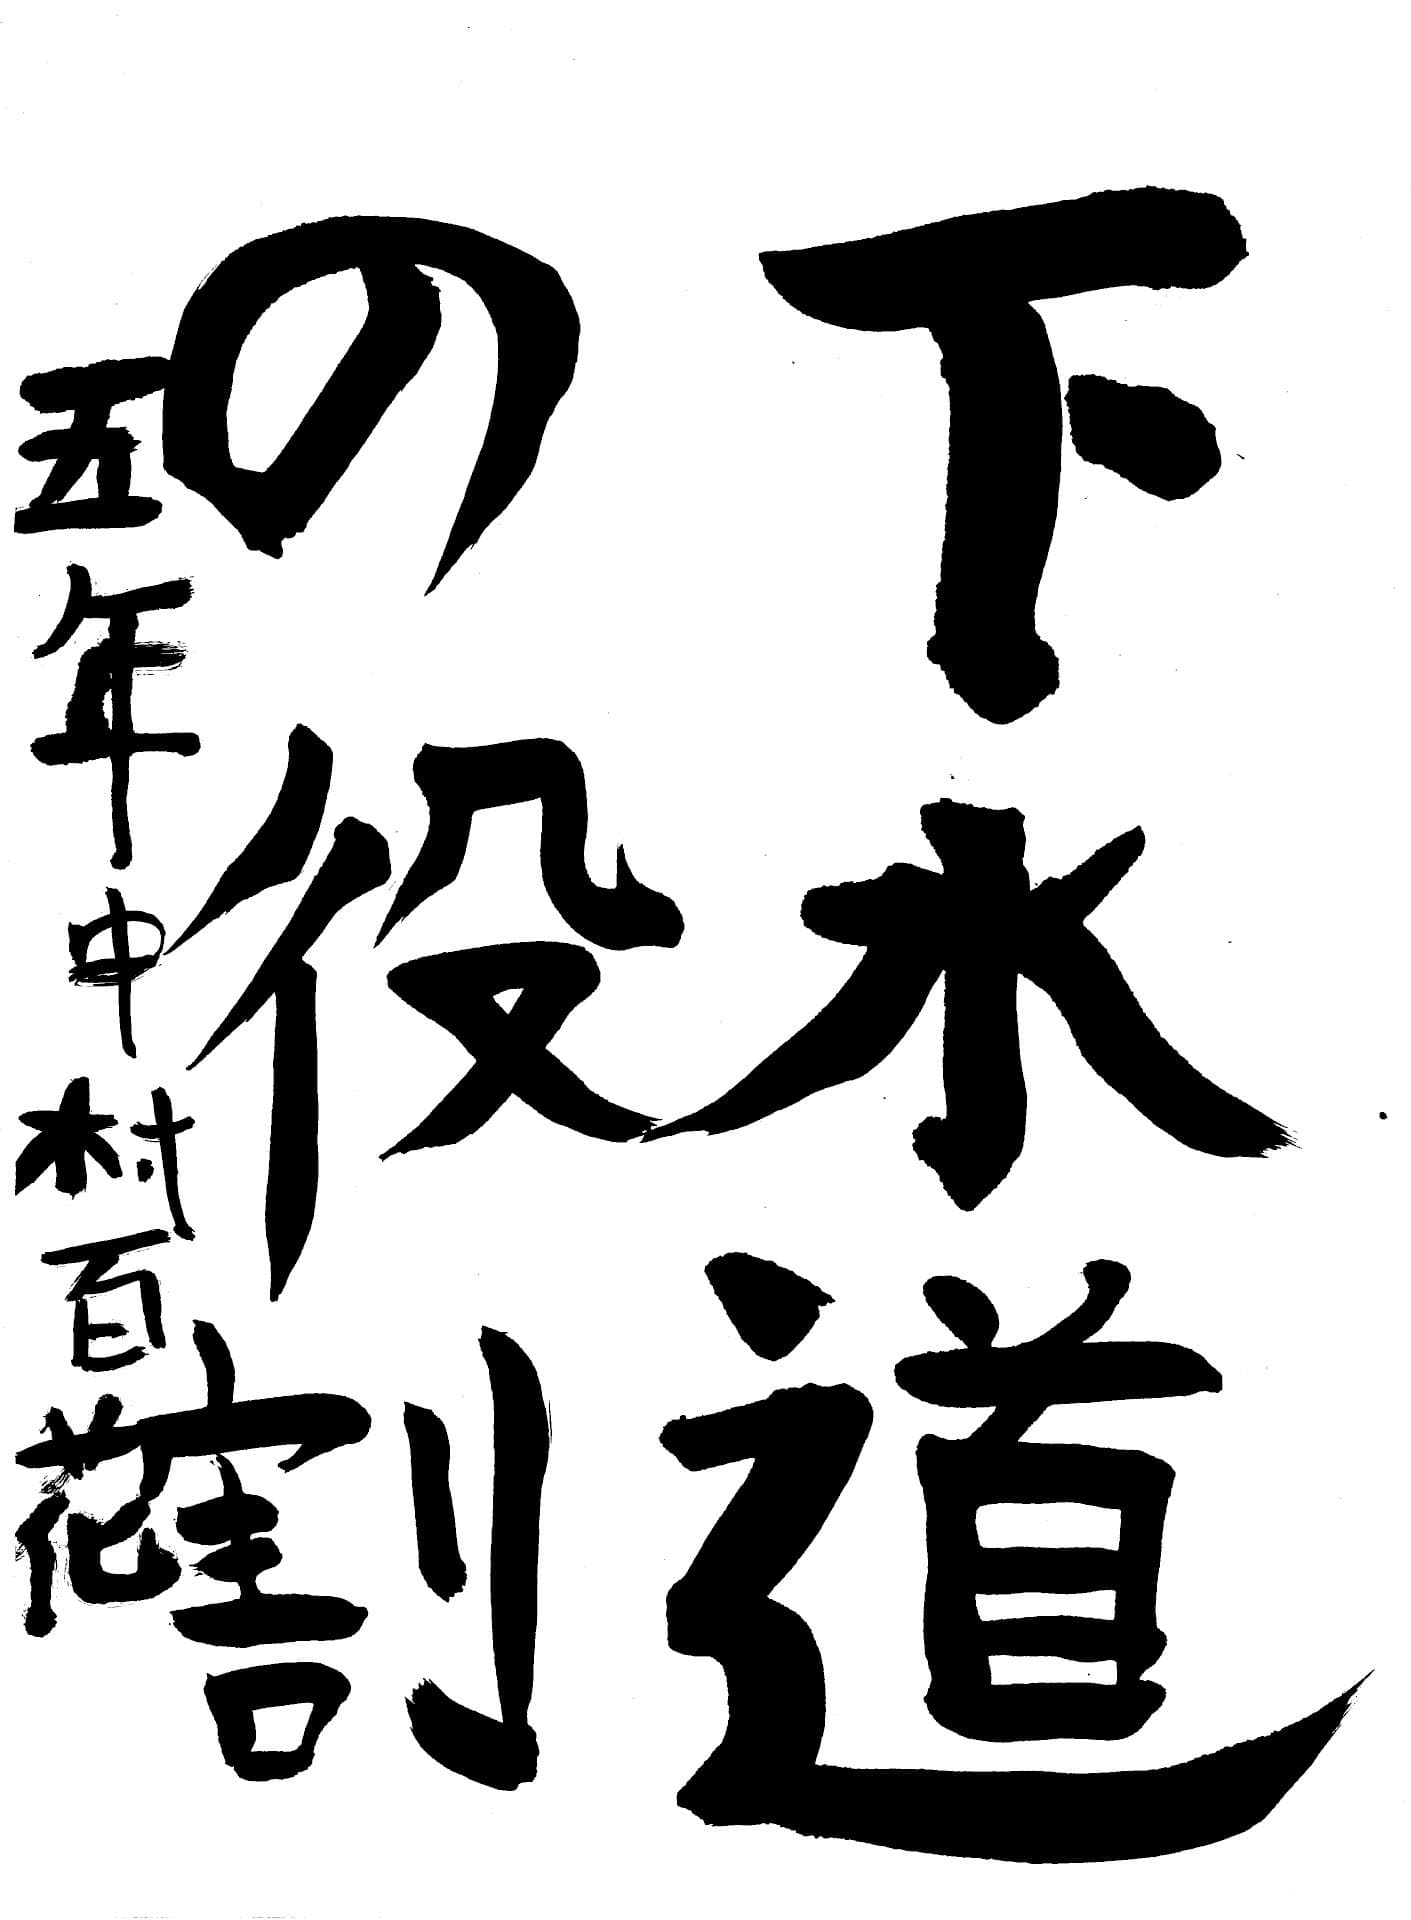 下水道
の役割
五年中村百花